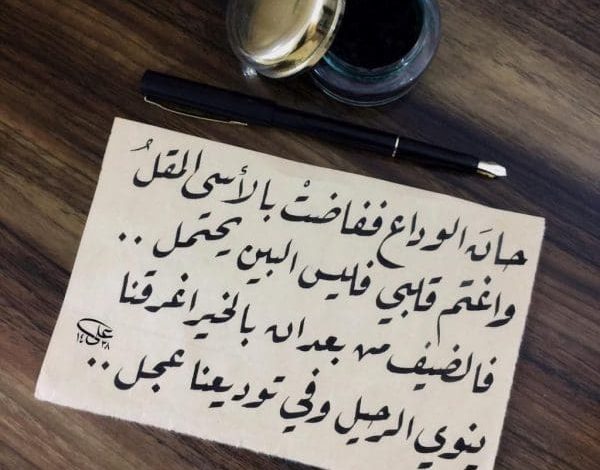 حانَ الوداع ففاضتْ بالأسى المقلُ
واغتم قلبي فليس البين يحتمل ..
فالضيف من بعد ان بالخير اغرقنا
ينوي الرحيل وفي توديعنا عجل ..
علي
١٤٣٨